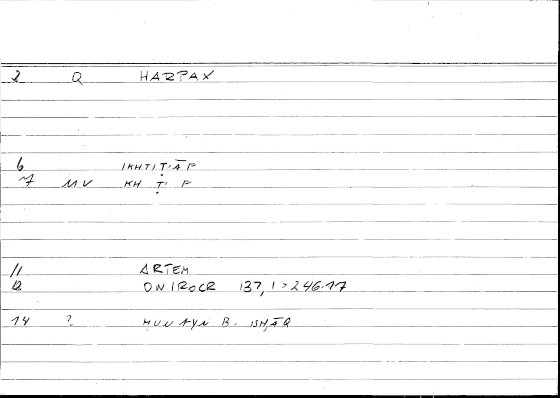 2 Q HARPAX
6 IKHTIṬĀF
7 MV KH Ṭ F
11 ARTEM
12 ONIROCR 137,1 > 246.17
14 ? ḤUNAYN B. ISḤĀQ